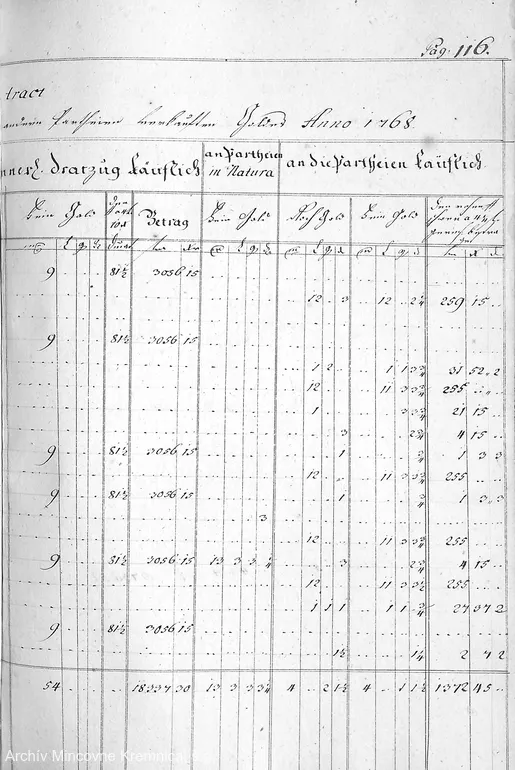 Pag. 116.
tract
andern Partheien verkauften Goldes Anno 1768
innerl. Dratzug Käuflich an Partheien in Natura an die Partheien Käuflich
Fein Gold Betrag Fein Gold Roch Gold Fein Gold
9 81½ 3056 15
12 3 12 2¼ 259 15
9 81½ 3056 15
1 2 1 1 3¾ 31 52 2
12 11 3 3¾ 255
1 3 3¾ 21 15
3 2¾ 4 15
9 81½ 3056 15 1 ¾ 1 3 3
12 11 3 3¾ 255
9 81½ 3056 15 1 ¾ 1 3 3
3
12 11 3 3¾ 255
9 81½ 3056 15 13 3 3 ¼ 3 2¾ 4 15
12 11 3 3½ 255
1 1 1 1 1 ¾ 27 37 2
9 81½ 3056 15
1½ 1¼ 2 7 2
54 18337 30 13 3 3 3¼ 4 2 1½ 4 1 1½ 1372 45
Archiv Mincovne Kremnica